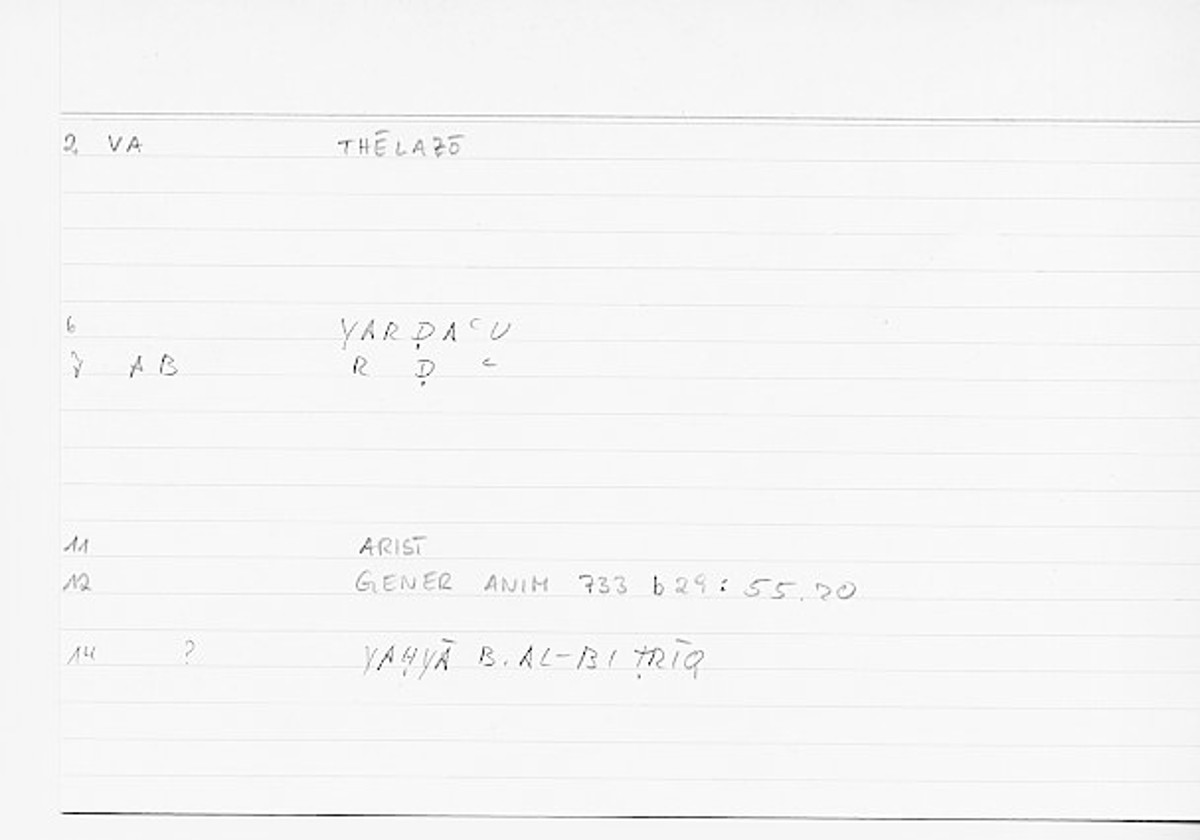 2 VA THĒLAZŌ
6 YARḌAʿU
7 AB R Ḍ ʿ
11 ARIST
12 GENER ANIM 733 b 29 : 55.20
14 ? YAḤYĀ B. AL-BIṬRĪQ